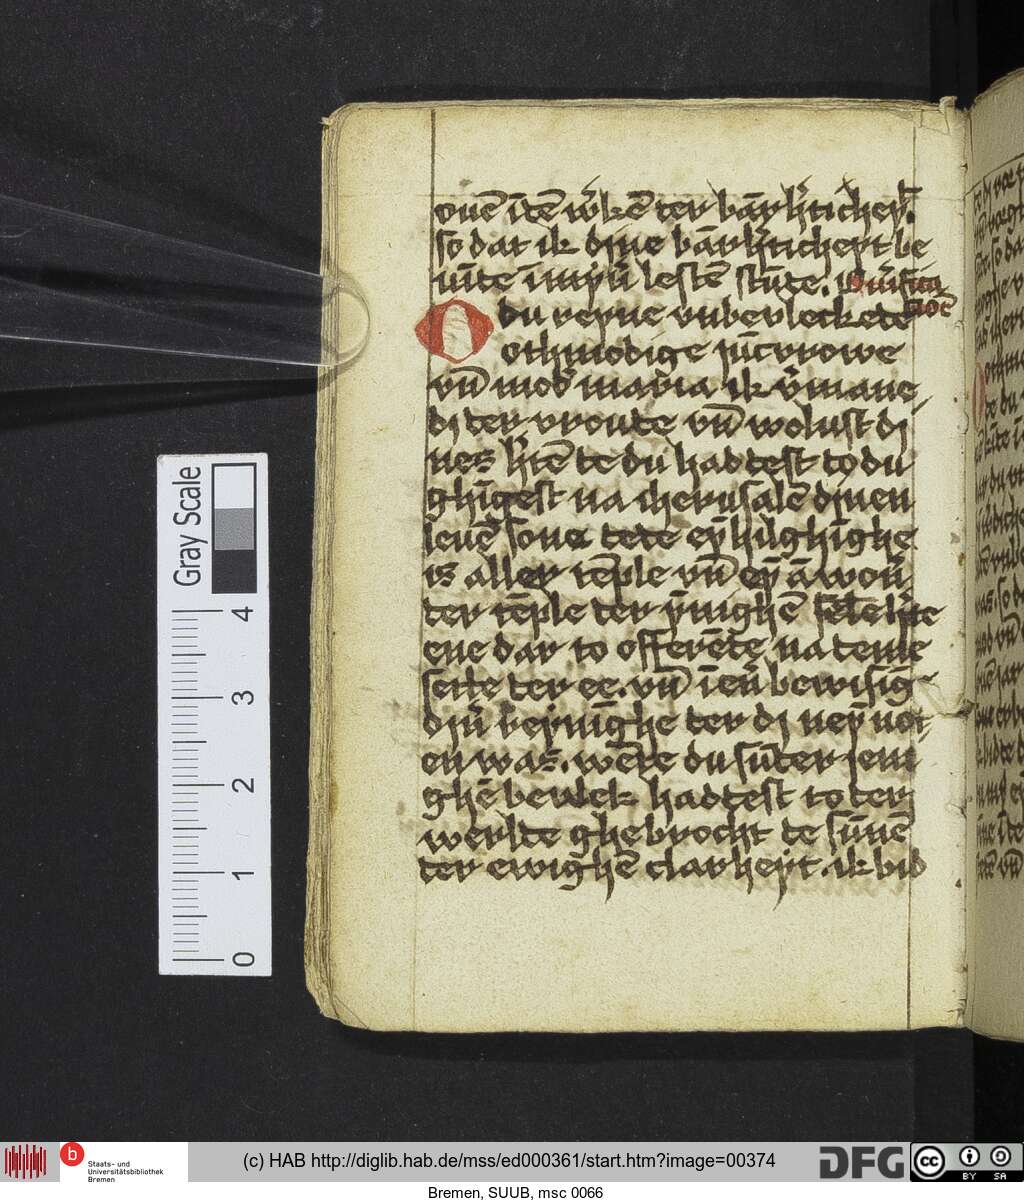 ouē ītē w̓kē der bārh̓ticheyt̄.
so dat ik dine bārh̓ticheyt be
uīde ī myn̄ lesten stūde.
O du reyne vnbevleckede
othmodige jūcvrowe
vn̄ mod̓ maria. ik v̓mane
di der vroude vn̄ wolust di
nes h̓tē de du haddest do du
ghīgest na iherusalē dinen
leuē sone. dede eȳ hilghīghe
is aller tēple vn̄ eȳ
der tēple der
ene dar to offerēde na deme
seede der ee. vn̄
dīn̄ reynīghe der di neȳ not
en was. wēte du sūder ienī
ghē bevlek haddest to der
werlde ghebrocht de sūnē
der ewighē clarheyt. ik bid
Gray Scale
4
3
2
1
0
b
Staats- und
Universitätsbibliothek
Bremen
(c) HAB http://diglib.hab.de/mss/ed000361/start.htm?image=00374
DFG
cc
BY
SA
Bremen, SUUB, msc 0066